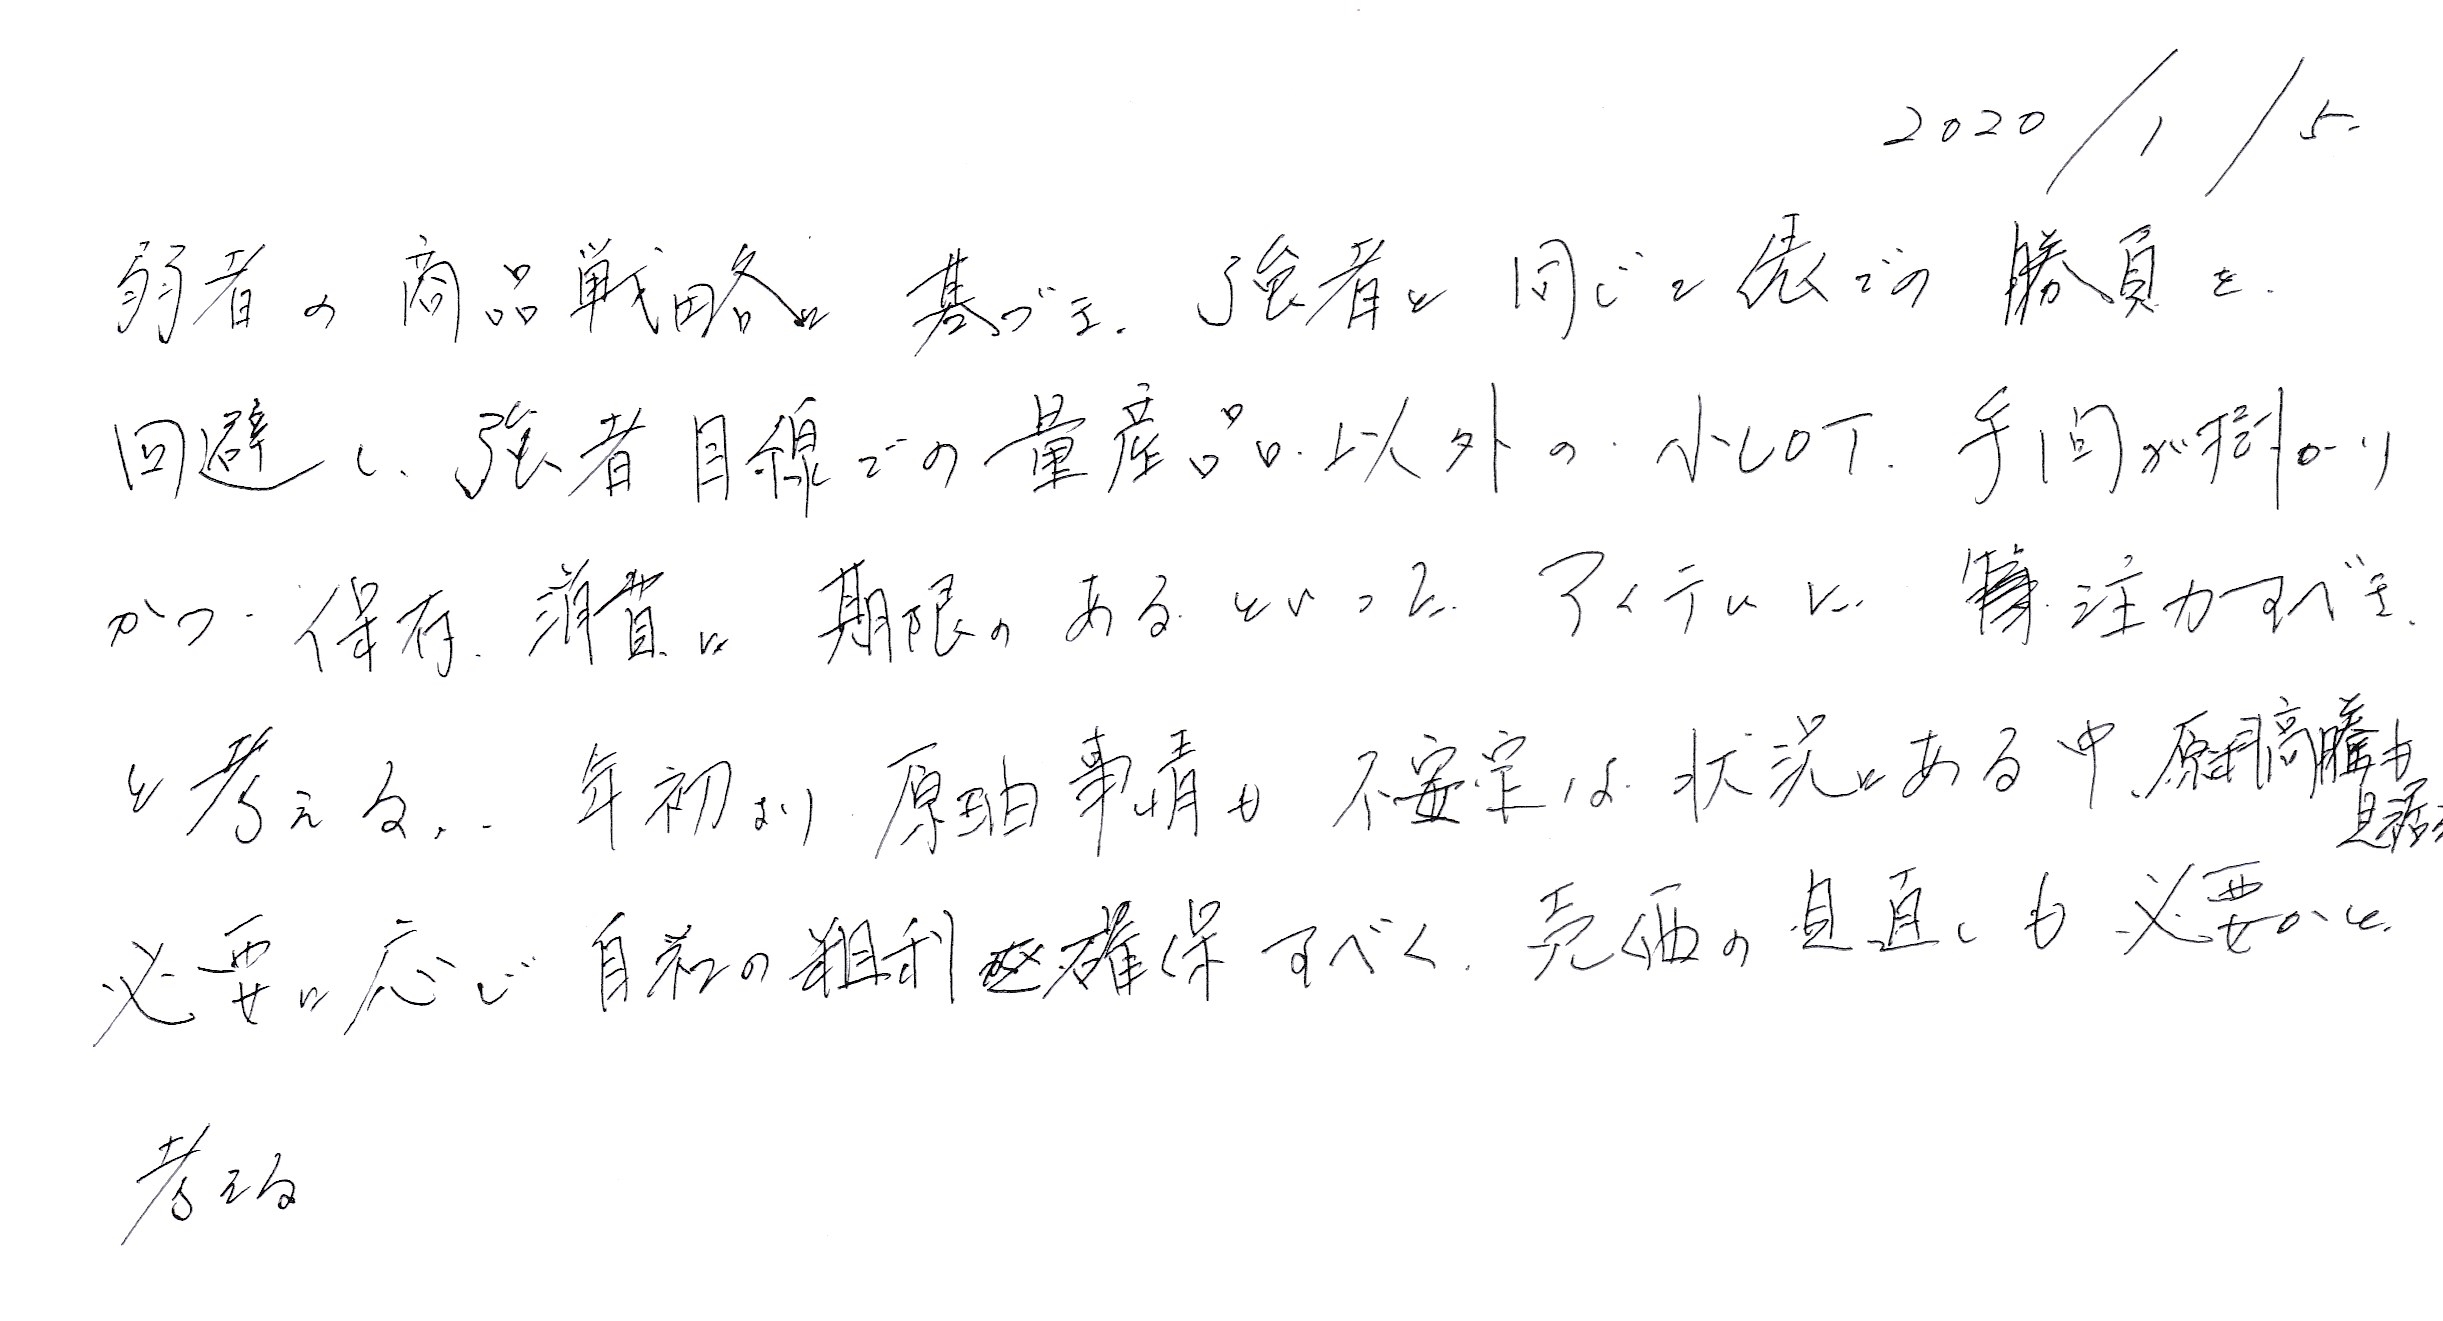 2020/1/5.
弱者の商品戦略に基づき、強者と同じ土俵での勝負を、
回避し、強者目線での量産品以外の、小LOT、手間が掛かり
かつ、保存、消費に期限のあるといったアイテムに、注力すべき、
と考える。年初より原油事情も不安定な状況にある中、原料高騰も
見据え
必要に応じ自社の粗利を確保すべく、売価の見直しも必要かと、
考える